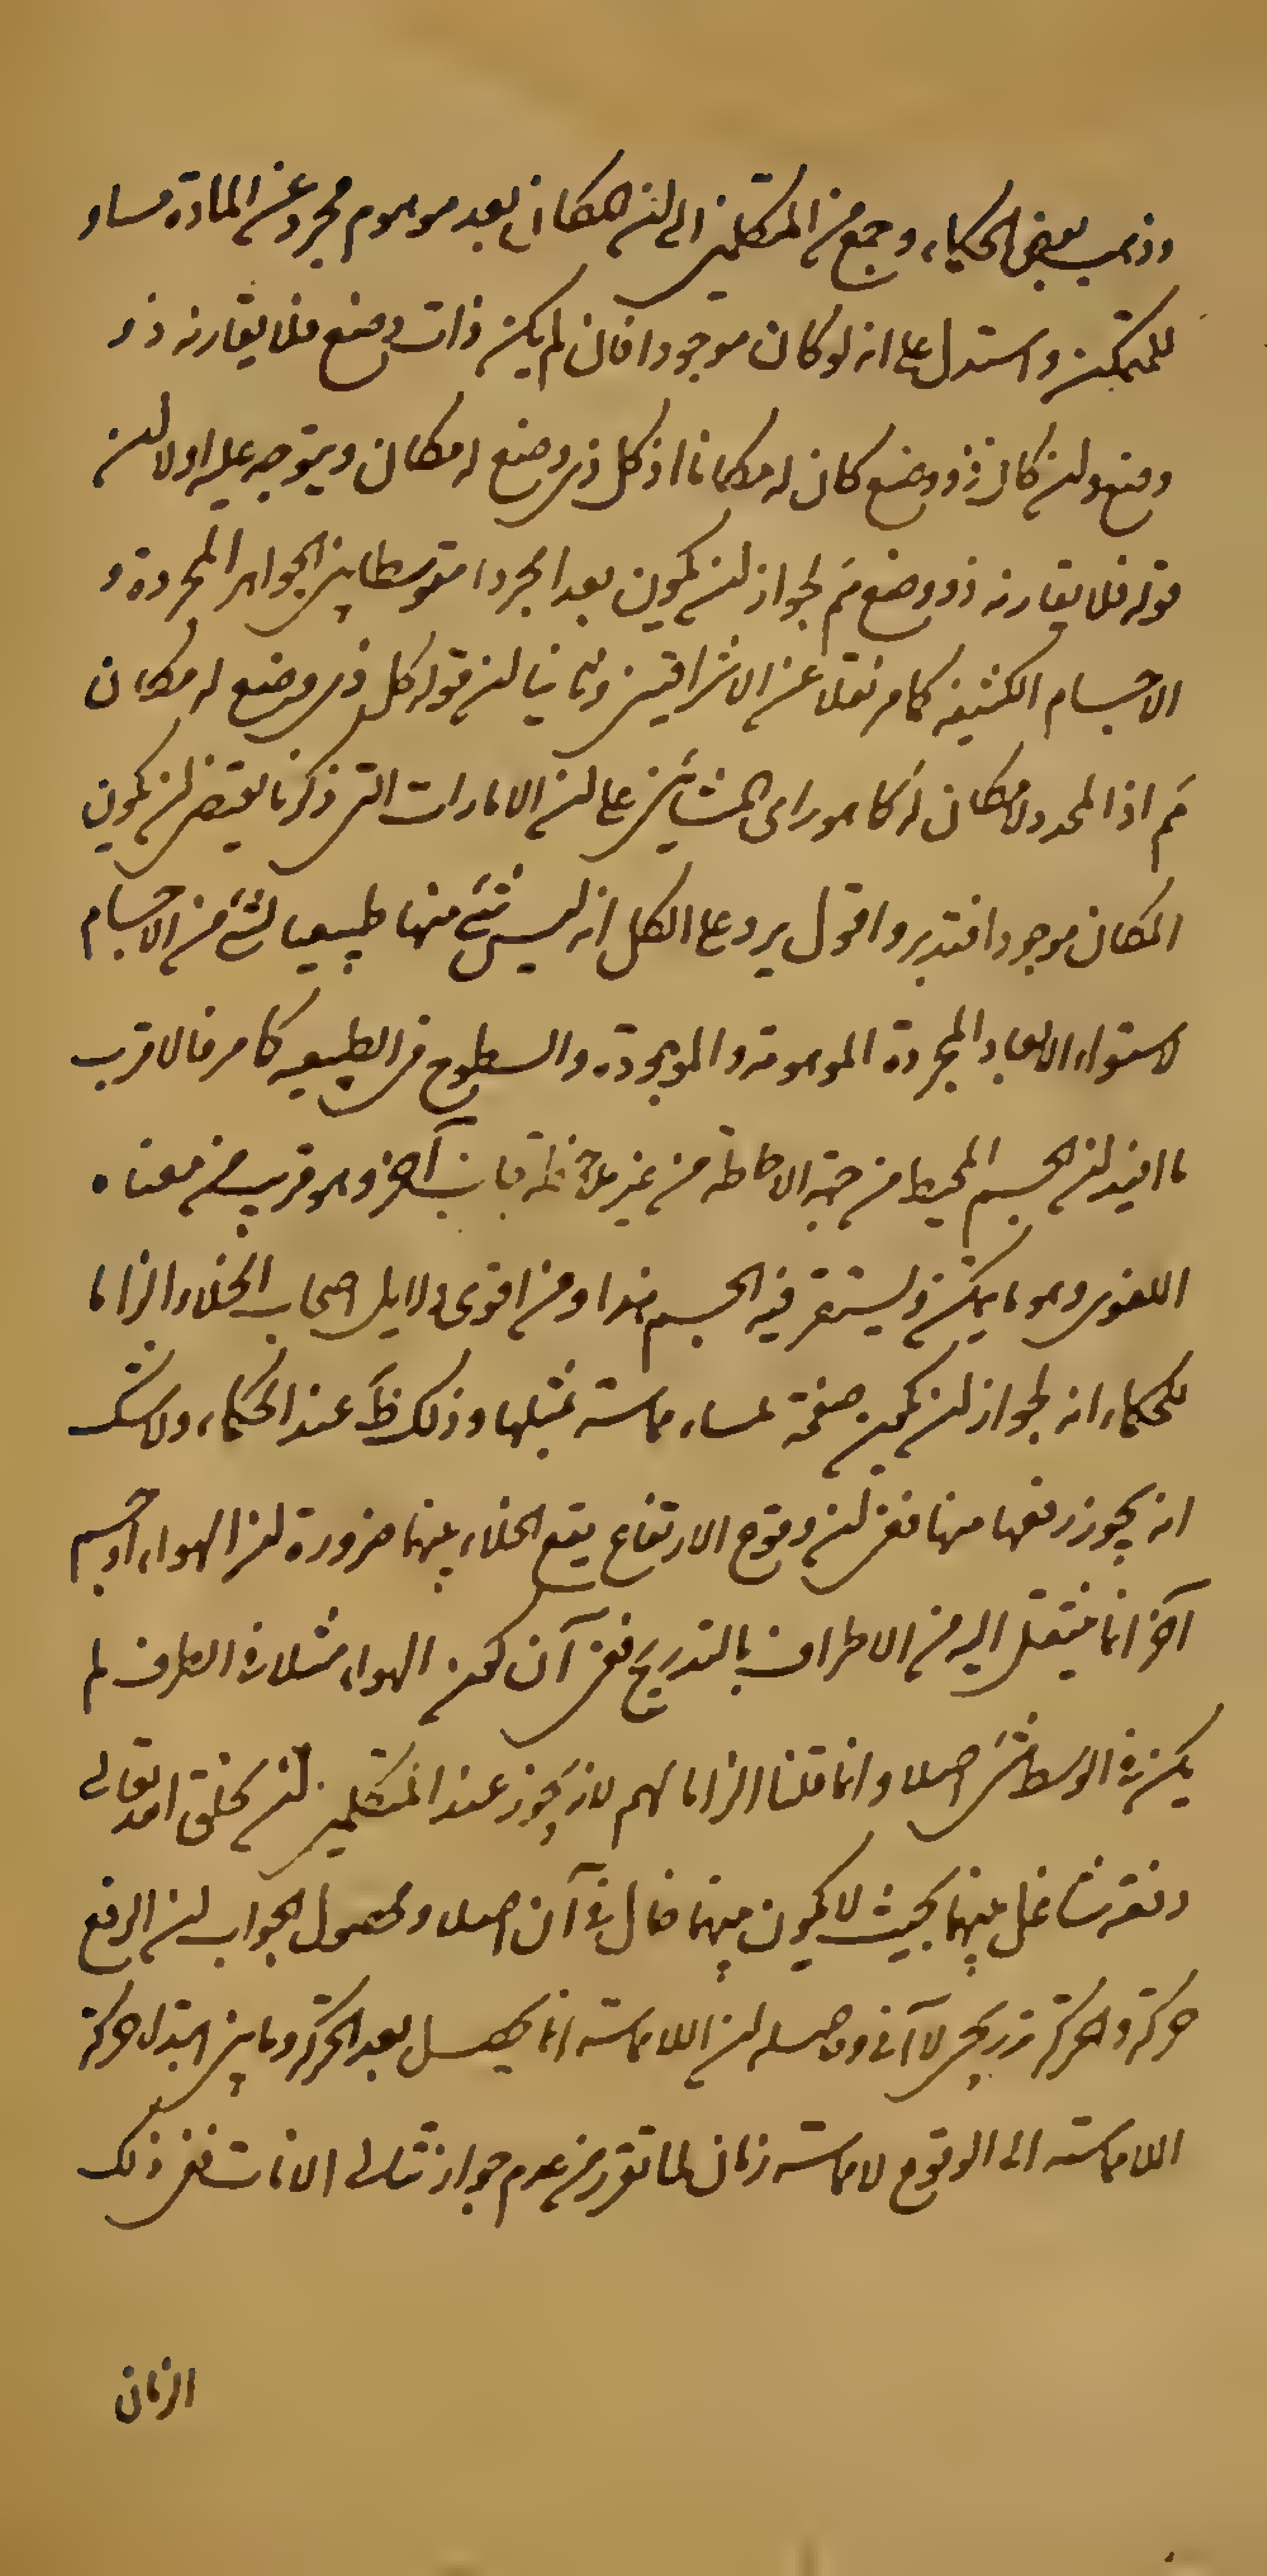 وذهب بعض الحكماء وجمع من المتكلمين الى ان المكان بعد موهوم مجرد عن المادة مساو
للمتمكن واستدل على انه لو كان موجودا فان لم يكن ذات وضع فلا يقارنه ذو
وضع وان كان ذو وضع كان له مكانا اذ كل ذي وضع له مكان ويتوجه عليه اولا ان
قوله فلا يقارنه ذو وضع مم لجواز ان يكون بعدا مجردا متوسطا بين الجواهر المجردة و
الاجسام الكثيفه كما مر نقلا عن الاشراقيين وثانيا ان قوله كل ذي وضع له مكان
مم اذ المحدد لا مكان له كما هو راى المشائين على ان الامارات التي ذكرنا يقتضي ان يكون
المكان موجودا فتدبر واقول يرد على الكل انه ليس شئ منها طبيعيا لشئ من الاجسام
لاستواء الابعاد المجردة الموهومة والموجودة والسطوح في الطبيعه كما مر فالاقرب
ما افيد ان الجسم المحيط من جهة الاحاطه من غير ملاحظة جانب آخر وهو قريب من معناه
اللغوي وهو ما يتمكن ويستقر فيه الجسم هذا ومن اقوى دلايل اصحاب الخلاء الزاما
للحكماء انه لجواز ان يكون صفحة ملساء مماسته بمثلها وذلك ظ عند الحكماء ولا شك
انه يجوز رفعها منها ففي ان وقوع الارتفاع يقع الخلاء بينهما ضرورة ان الهواء او جسم
آخر انما ينتقل اليه من الاطراف بالتدريج ففي آن كون الهواء مثلا في الطرف لم
يكن في الوسط شئ اصلا وانما قلنا الزاما لهم لانه يجوز عند المتكلمين ان يخلق الله تعالى
دفعة شاغل بينهما بحيث لا يكون بينهما خال في آن اصلا ومحصول الجواب ان الرفع
حركة والحركة تدريجي لا آني وحاصله ان اللامماسته انما يحصل بعد الحركة وما بين ابتداء حركة
اللامماسته الى الوقوع لا مماسته زمان لما تقرر من عدم جواز تتالي الانات ففي ذلك
الزمان